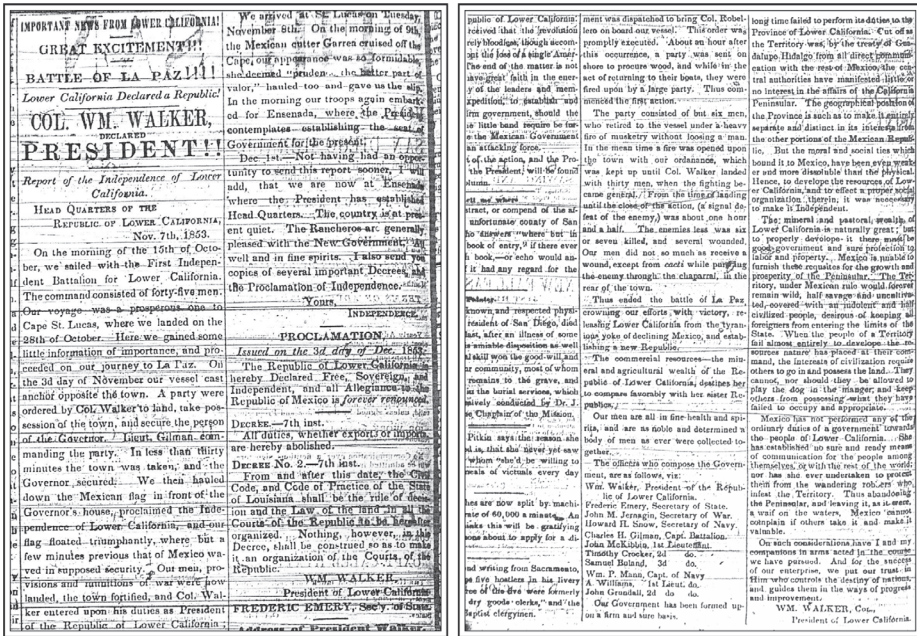 IMPORTANT NEWS FROM LOWER CALIFORNIA!
GREAT EXCITEMENT!!!
BATTLE OF LA PAZ!!!!
Lower California Declared a Republic!
COL. WM. WALKER,
DECLARED
PRESIDENT!!
Report of the Independence of Lower
California.
HEAD QUARTERS OF THE
REPUBLIC OF LOWER CALIFORNIA,
Nov. 7th, 1853.
On the morning of the 15th of Octo-
ber, we sailed with the First Indepen-
dent Battalion for Lower California.
The command consisted of forty-five men.
Our voyage was a prosperous one to
Cape St. Lucas, where we landed on the
28th of October. Here we gained some
little information of importance, and pro-
ceeded on our journey to La Paz. On
the 3d day of November our vessel cast
anchor opposite the town. A party were
ordered by Col. Walker to land, take pos-
session of the town, and secure the person
of the Governor. Lieut. Gilman com-
manding the party. In less than thirty
minutes the town was taken, and the
Governor secured. We then hauled
down the Mexican flag in front of the
Governor's house, proclaimed the Inde-
pendence of Lower California, and our
flag floated triumphantly, where but a
few minutes previous that of Mexico wa-
ved in supposed security. Our men, pro-
visions and munitions of war were now
landed, the town fortified, and Col. Wal-
ker entered upon his duties as President
of the Republic of Lower California.
We arrived at St. Lucas on Tuesday,
November 8th. On the morning of 9th,
the Mexican cutter Garren cruised off the
Cape, our appearance was so formidable,
she deemed "pruden the better part of
valor," hauled too and gave us the slip.
In the morning our troops again embark-
ed for Ensenada, where the President
contemplates establishing the seat of
Government for the present.
Dec. 1st.—Not having had an oppor-
tunity to send this report sooner, I will
add, that we are now at Ensenada
where the President has established
Head Quarters. The country is at pres-
ent quiet. The Rancheros are generally
pleased with the New Government. All
well and in fine spirits. I also send you
copies of several important Decrees, and
the Proclamation of Independence.
Yours,
INDEPENDENCE.
PROCLAMATION,
Issued on the 3d day of Dec. 1853.
The Republic of Lower California is
hereby Declared Free, Sovereign, and
Independent, and all Allegiance to the
Republic of Mexico is forever renounced.
DECREE.—7th inst.
All duties, whether exports or imports,
are hereby abolished.
DECREE No. 2.—7th inst.
From and after this date, the Civil
Code, and Code of Practice of the State
of Louisiana shall be the rule of decis-
ion and the Law of the land in all the
Courts of the Republic to be hereafter
organized. Nothing, however, in this
Decree, shall be construed so as to make
it an organization of the Courts of the
Republic.
WM. WALKER,
President of Lower California.
FREDERIC EMERY, Sec'y. of State.
Address of President Walker.
public of Lower California.
ceived that the revolution
rely bloodless, though accom-
out the loss of a single Amer-
The end of the matter is not
have great faith in the ener-
y of the leaders and mem-
xpedition, to establish and
irm government, should the
little band require be fur-
e the Mexican Government
an attacking force.
of the action, and the Pro-
the President, will be found
olumn.
tract, or compend of the
nfortunate county of San
no answers where but in
book of entry," if there ever
h book,—or echo would an-
it had any regard for the
known and respected physi-
resident of San Diego, died
ast, after an illness of some
s amiable disposition as well
al skill won the good-will and
ur community, most of whom
remains to the grave, and
n the burial services, which
sively conducted by Dr. J.
e Chaplain of the Mission.
Pitkin says the reason she
d is, that she never yet saw
whom "she'd be willing to
meals of victuals every day
hes are now split by machi-
ate of 60,000 a minute. An
inks this will be gratifying
ons about to apply for a di-
nd writing from Sacramento,
e five hostlers in his livery
ors of the five were formerly
dry goods clerks," and the
aptist clergymen.
ment was dispatched to bring Col. Robel-
lero on board our vessel. This order was
promptly executed. About an hour after
this occurrence, a party was sent on
shore to procure wood, and while in the
act of returning to their boats, they were
fired upon by a large party. Thus com-
menced the first action.
The party consisted of but six men,
who retired to the vessel under a heavy
fire of musketry without losing a man.
In the mean time a fire was opened upon
the town with our ordnance, which
was kept up until Col. Walker landed
with thirty men, when the fighting be-
came general. From the time of landing
until the close of the action, (a signal de-
feat of the enemy,) was about one hour
and a half. The enemies loss was six
or seven killed, and several wounded.
Our men did not so much as receive a
wound, except from cacti while pursuing
the enemy through the chaparral, in the
rear of the town.
Thus ended the battle of La Paz
crowning our efforts with victory, re-
leasing Lower California from the tyran-
nic yoke of declining Mexico, and estab-
lishing a new Republic.
The commercial resources—the min-
eral and agricultural wealth of the Re-
public of Lower California, destines her
to compare favorably with her sister Re-
publics.
Our men are all in fine health and spi-
rits, and are as noble and determined a
body of men as were ever collected to-
gether.
The officers who compose the Govern-
ment, are as follows, viz:
Wm. Walker, President of the Repub-
lic of Lower California.
Frederic Emery, Secretary of State.
John M. Jernagin, Secretary of War.
Howard H. Snow, Secretary of Navy.
Charles H. Gilman, Capt. Battalion.
John McKibbin, 1st Lieutenant.
Timothy Crocker, 2d do.
Samuel Buland, 3d do.
Wm. P. Mann, Capt. of Navy
A. Williams, 1st Lieut. do.
John Grundall, 2d do do.
Our Government has been formed up-
on a firm and sure basis.
long time failed to perform its duties to the
Province of Lower California. Cut off as
the Territory was, by the treaty of Gua-
dalupe Hidalgo from all direct communi-
cation with the rest of Mexico, the cen-
tral authorities have manifested little or
no interest in the affairs of the California
Peninsular. The geographical position of
the Province is such as to make it entirely
separate and distinct in its interests from
the other portions of the Mexican Repub-
lic. But the moral and social ties which
bound it to Mexico, have been even weak-
er and more dissoluble than the physical.
Hence, to develope the resources of Low-
er California, and to effect a proper social
organization therein, it was necessary
to make it Independent.
The mineral and pastoral wealth of
Lower California is naturally great; but
to properly develope it there must be
good government and sure protection to
labor and property. Mexico is unable to
furnish the requisites for the growth and
prosperity of the Peninsular. The Ter-
ritory, under Mexican rule would forever
remain wild, half savage and uncultiva-
ted, covered with an indolent and half
civilized people, desirous of keeping all
foreigners from entering the limits of the
State. When the people of a Territory
fail almost entirely to develope the re-
sources nature has placed at their com-
mand, the interests of civilization require
others to go in and possess the land. They
cannot, nor should they be allowed to
play the dog in the manger and keep
others from possessing what they have
failed to occupy and appropriate.
Mexico has not performed any of the
ordinary duties of a government towards
the people of Lower California. She
has established no sure and ready means
of communication for the people among
themselves, or with the rest of the world;
nor has she ever undertaken to protect
them from the wandering robbers who
infest the Territory. Thus abandoning
the Peninsular, and leaving it, as it were,
a waif on the waters, Mexico cannot
complain if others take it and make it
valuable.
On such considerations have I and my
companions in arms acted in the course
we have pursued. And for the success
of our enterprise, we put our trust in
Him who controls the destiny of nations,
and guides them in the ways of progress
and improvement.
WM. WALKER, Col.,
President of Lower California.